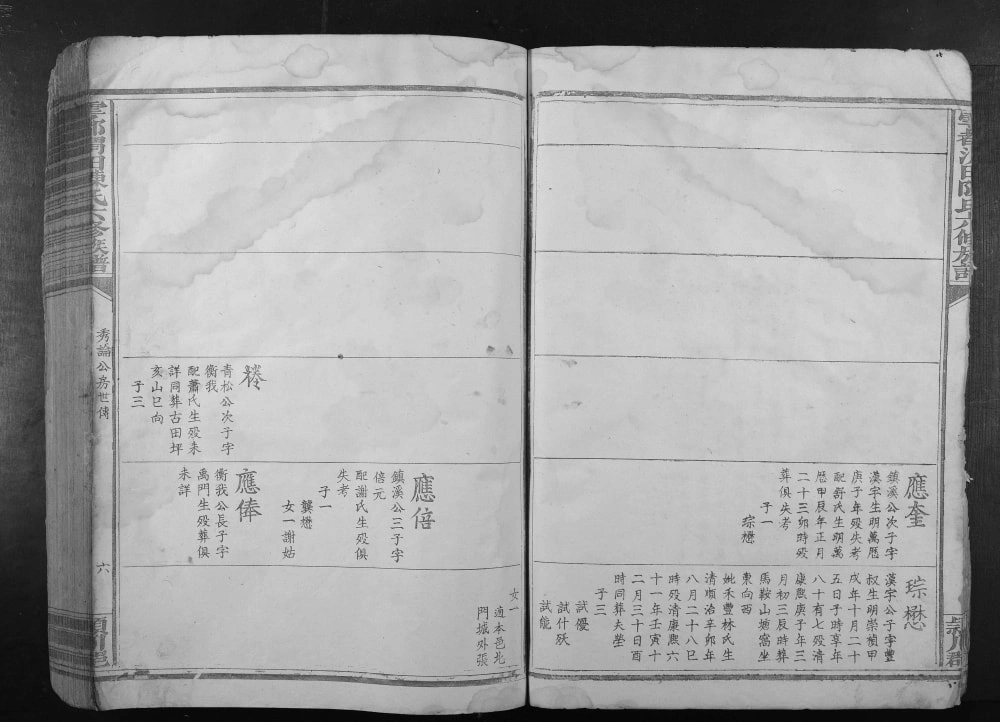 應奎
鎮溪公次子字
漢宇生明萬曆
庚子年殁失考
配舒氏生明萬
曆甲辰年正月
二十三卯時殁
葬俱失考
子一
琮懋
琮懋
漢宇公子字豐
叔生明崇禎甲
戌年十月二十
五日子時享年
八十有七殁清
康熙庚子年三
月初三辰時葬
馬鞍山坡窩坐
東向西
妣禾豐林氏生
清順治辛卯年
八月二十八巳
時殁清康熙六
十一年壬寅十
二月三十日酉
時同葬夫塋
子三
試優
試什殀
試能
女一
適本邑北
門城外張
椿
青松公次子字
衡我
配蕭氏生殁未
詳同葬古田坪
亥山巳向
子三
應倍
鎮溪公三子字
倍元
配謝氏生殁俱
失考
子一
龔懋
女一謝姑
應俸
衡我公長子字
禹門生殁葬俱
未詳
陳氏六修族譜
秀論公房世傳
六